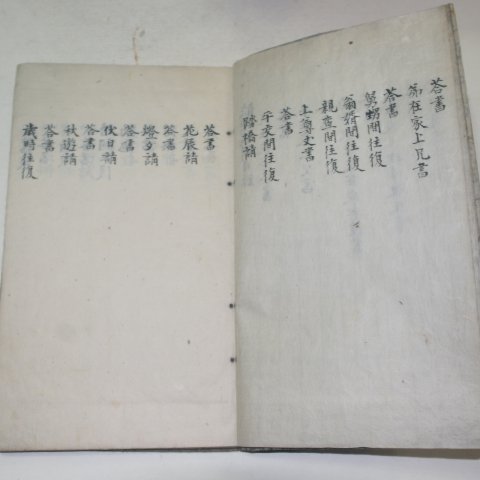 答書
弟在家上兄書
答書
舅甥間往復
翁婿間往復
親査間往復
上尊丈書
答書
平交間往復
踏橋請
答書
花辰請
答書
燈夕請
答書
伏日請
答書
秋遊請
答書
歲時往復